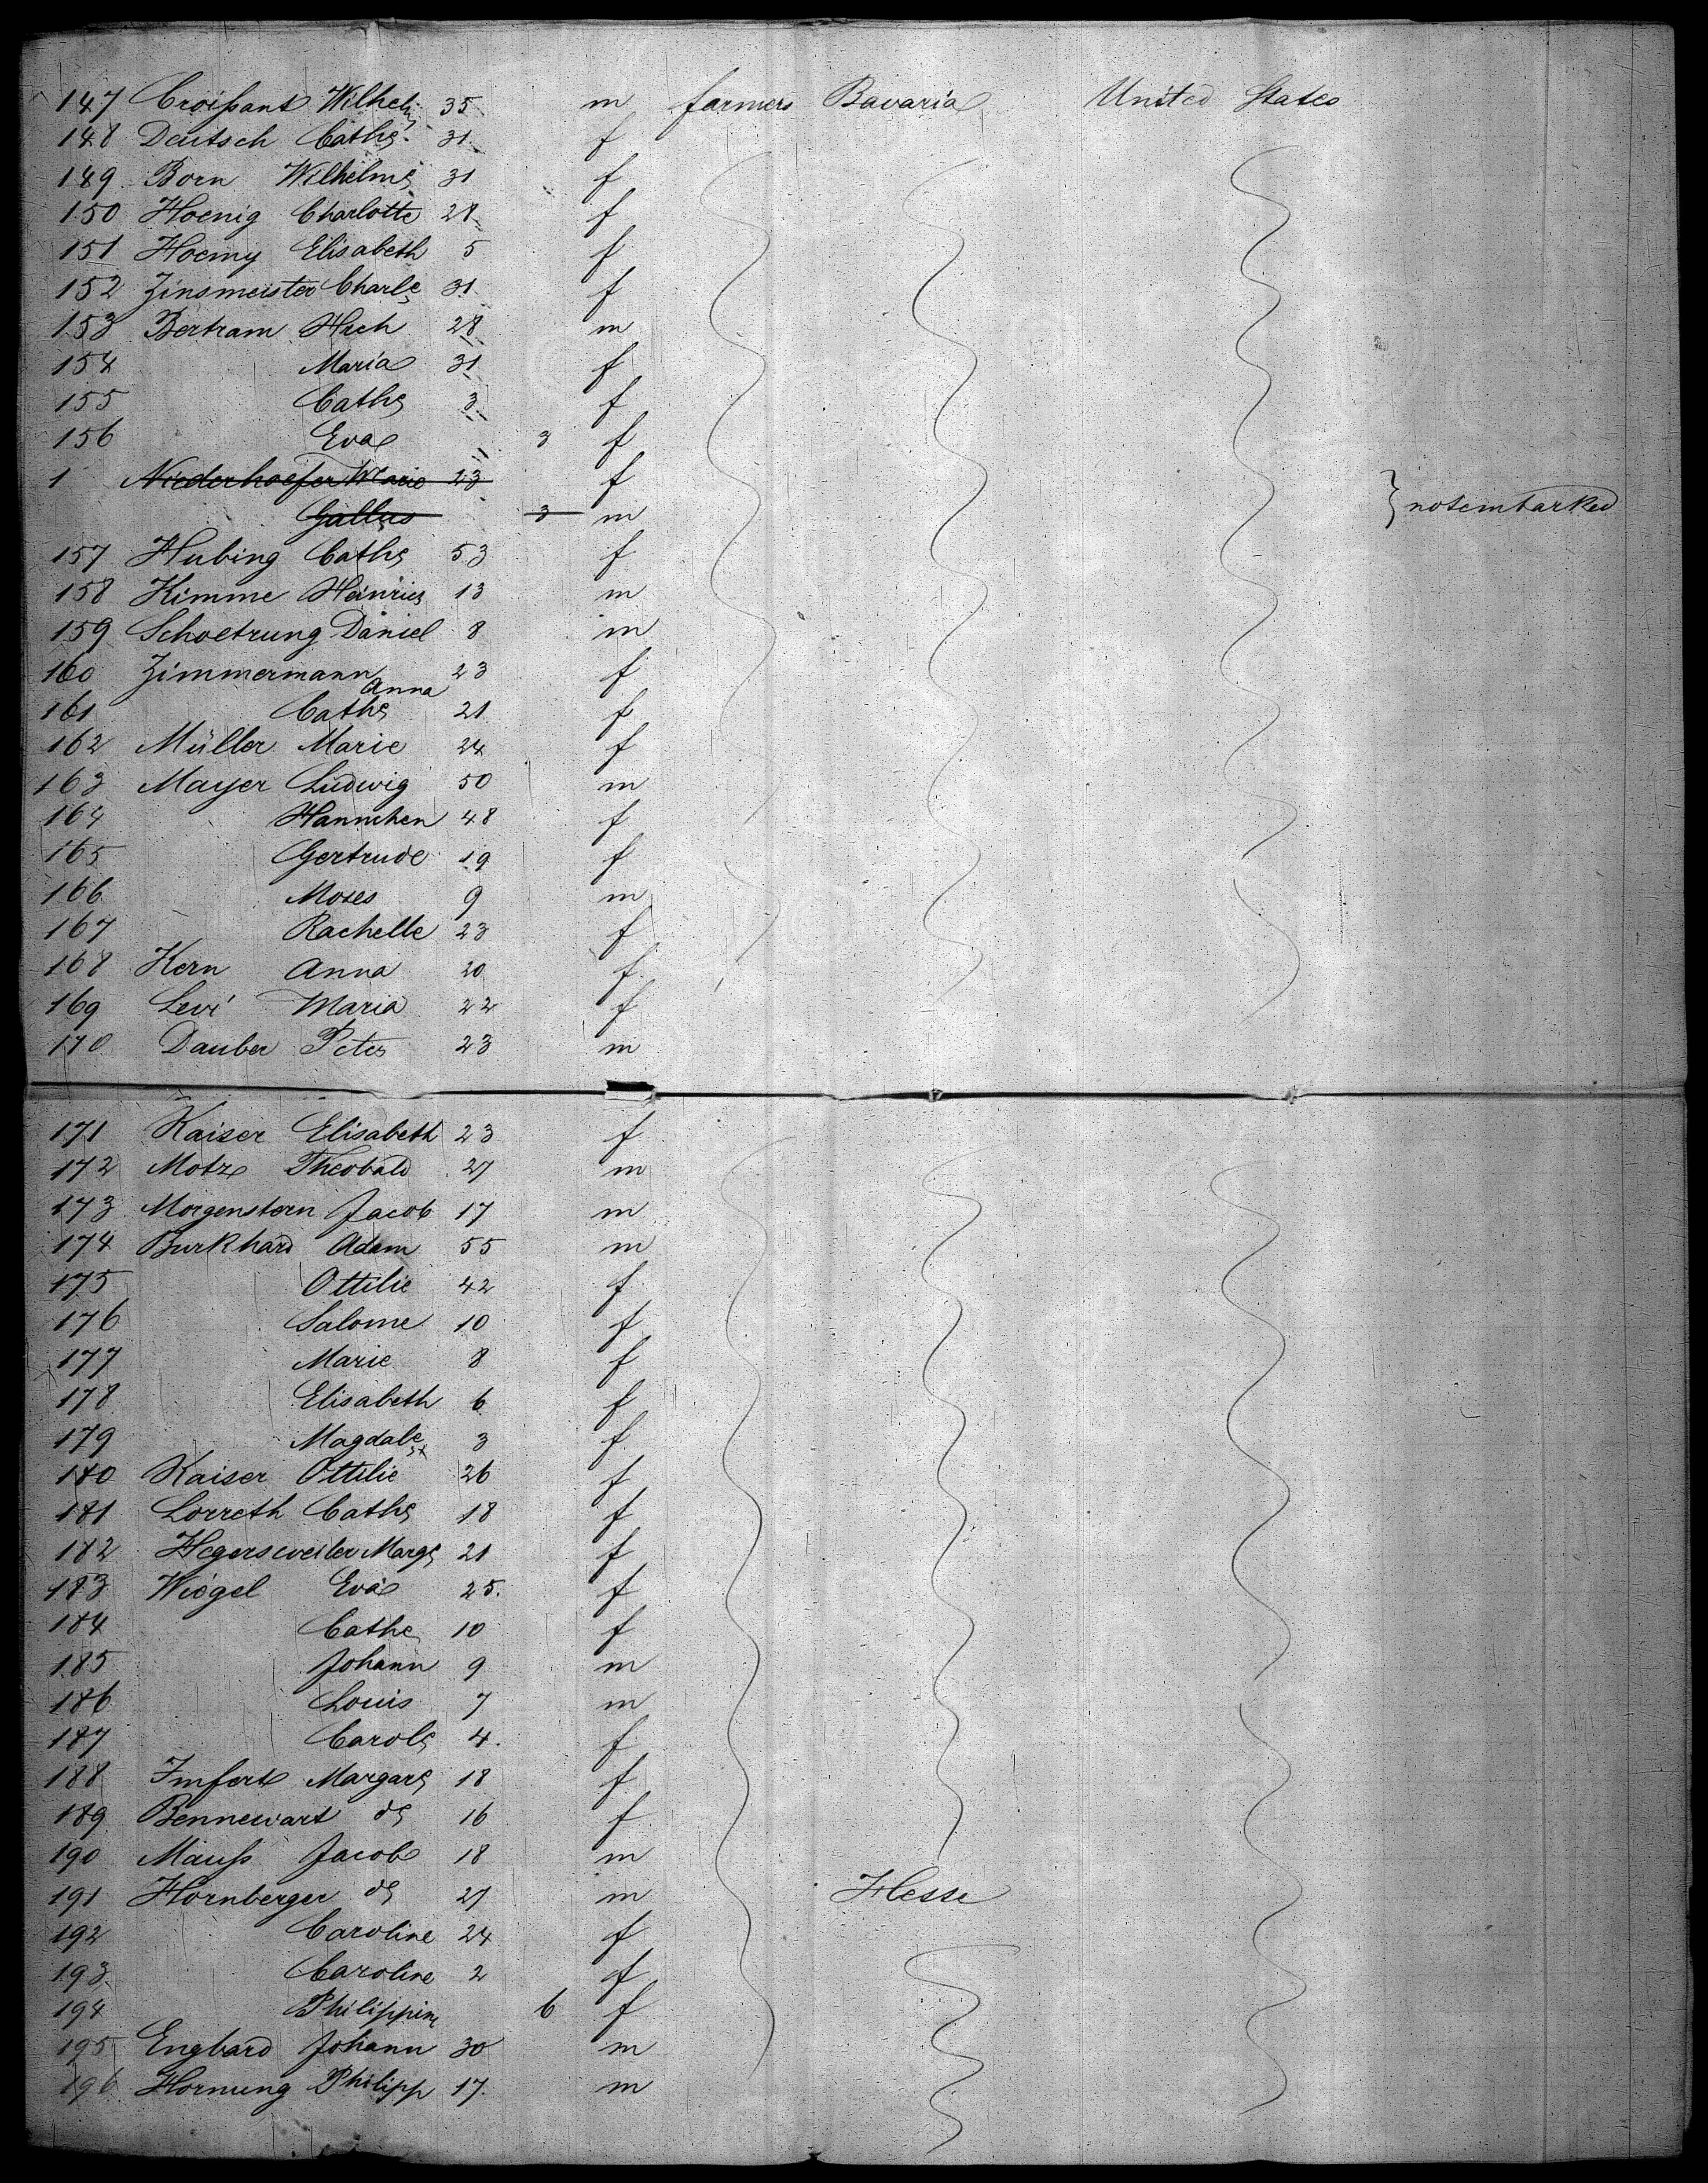 147 Croißant Wilhelm 35 m farmers Bavaria United States
148 Deutsch Cathe 31 f
149 Born Wilhelme 31 f
150 Hoenig Charlotte 28 f
151 Hoemy Elisabeth 5 f
152 Zinsmeister Charle 31 f
153 Bertram Hch 28 m
154 Maria 31 f
155 Cathe 3 f
156 Eva 3 f
1 Niederhoefer Marie 23 f
Gallus 3 m } not embarked
157 Hubing Cathe 53 f
158 Kimme Heinrich 13 m
159 Schoetrung Daniel 8 m
160 Zimmermann Anna 23 f
161 Cathe 21 f
162 Müller Marie 24 f
163 Mayer Ludwig 50 m
164 Hannchen 48 f
165 Gertrude 19 f
166 Moses 9 m
167 Rachelle 23 f
168 Kern Anna 20 f
169 Levi Maria 22 f
170 Dauber Peter 23 m
171 Kaiser Elisabeth 23 f
172 Motz Theobald 27 m
173 Morgenstern Jacob 17 m
174 Burkhard Adam 55 m
175 Ottilie 42 f
176 Salome 10 f
177 Marie 8 f
178 Elisabeth 6 f
179 Magdale 3 f
180 Kaiser Ottilie 26 f
181 Lorreth Cathe 18 f
182 Hegersweiler Marge 21 f
183 Wiegel Eva 25. f
184 Cathe 10 f
185 Johann 9 m
186 Louis 7 m
187 Carole 4. f
188 Imfert Margare 18 f
189 Bennewart do 16 f
190 Mauß Jacob 18 m
191 Hornberger do 27 m Hesse
192 Caroline 24 f
193 Caroline 2 f
194 Philippine 6 f
195 Engbard Johann 30 m
196 Hornung Philipp 17. m